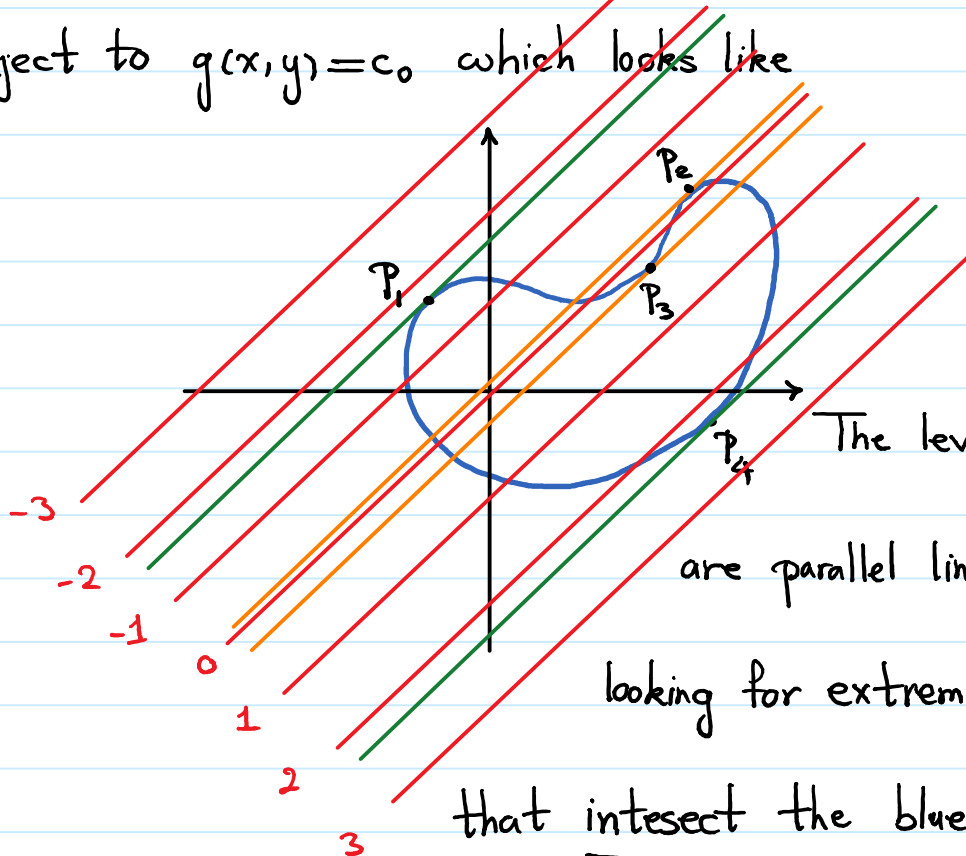 ject to g(x,y)=c₀ which looks like
P₂
P₁
P₃
The lev
P₄
-3
are parallel lin
-2
-1
0
looking for extrem
1
2
that intesect the blue
3